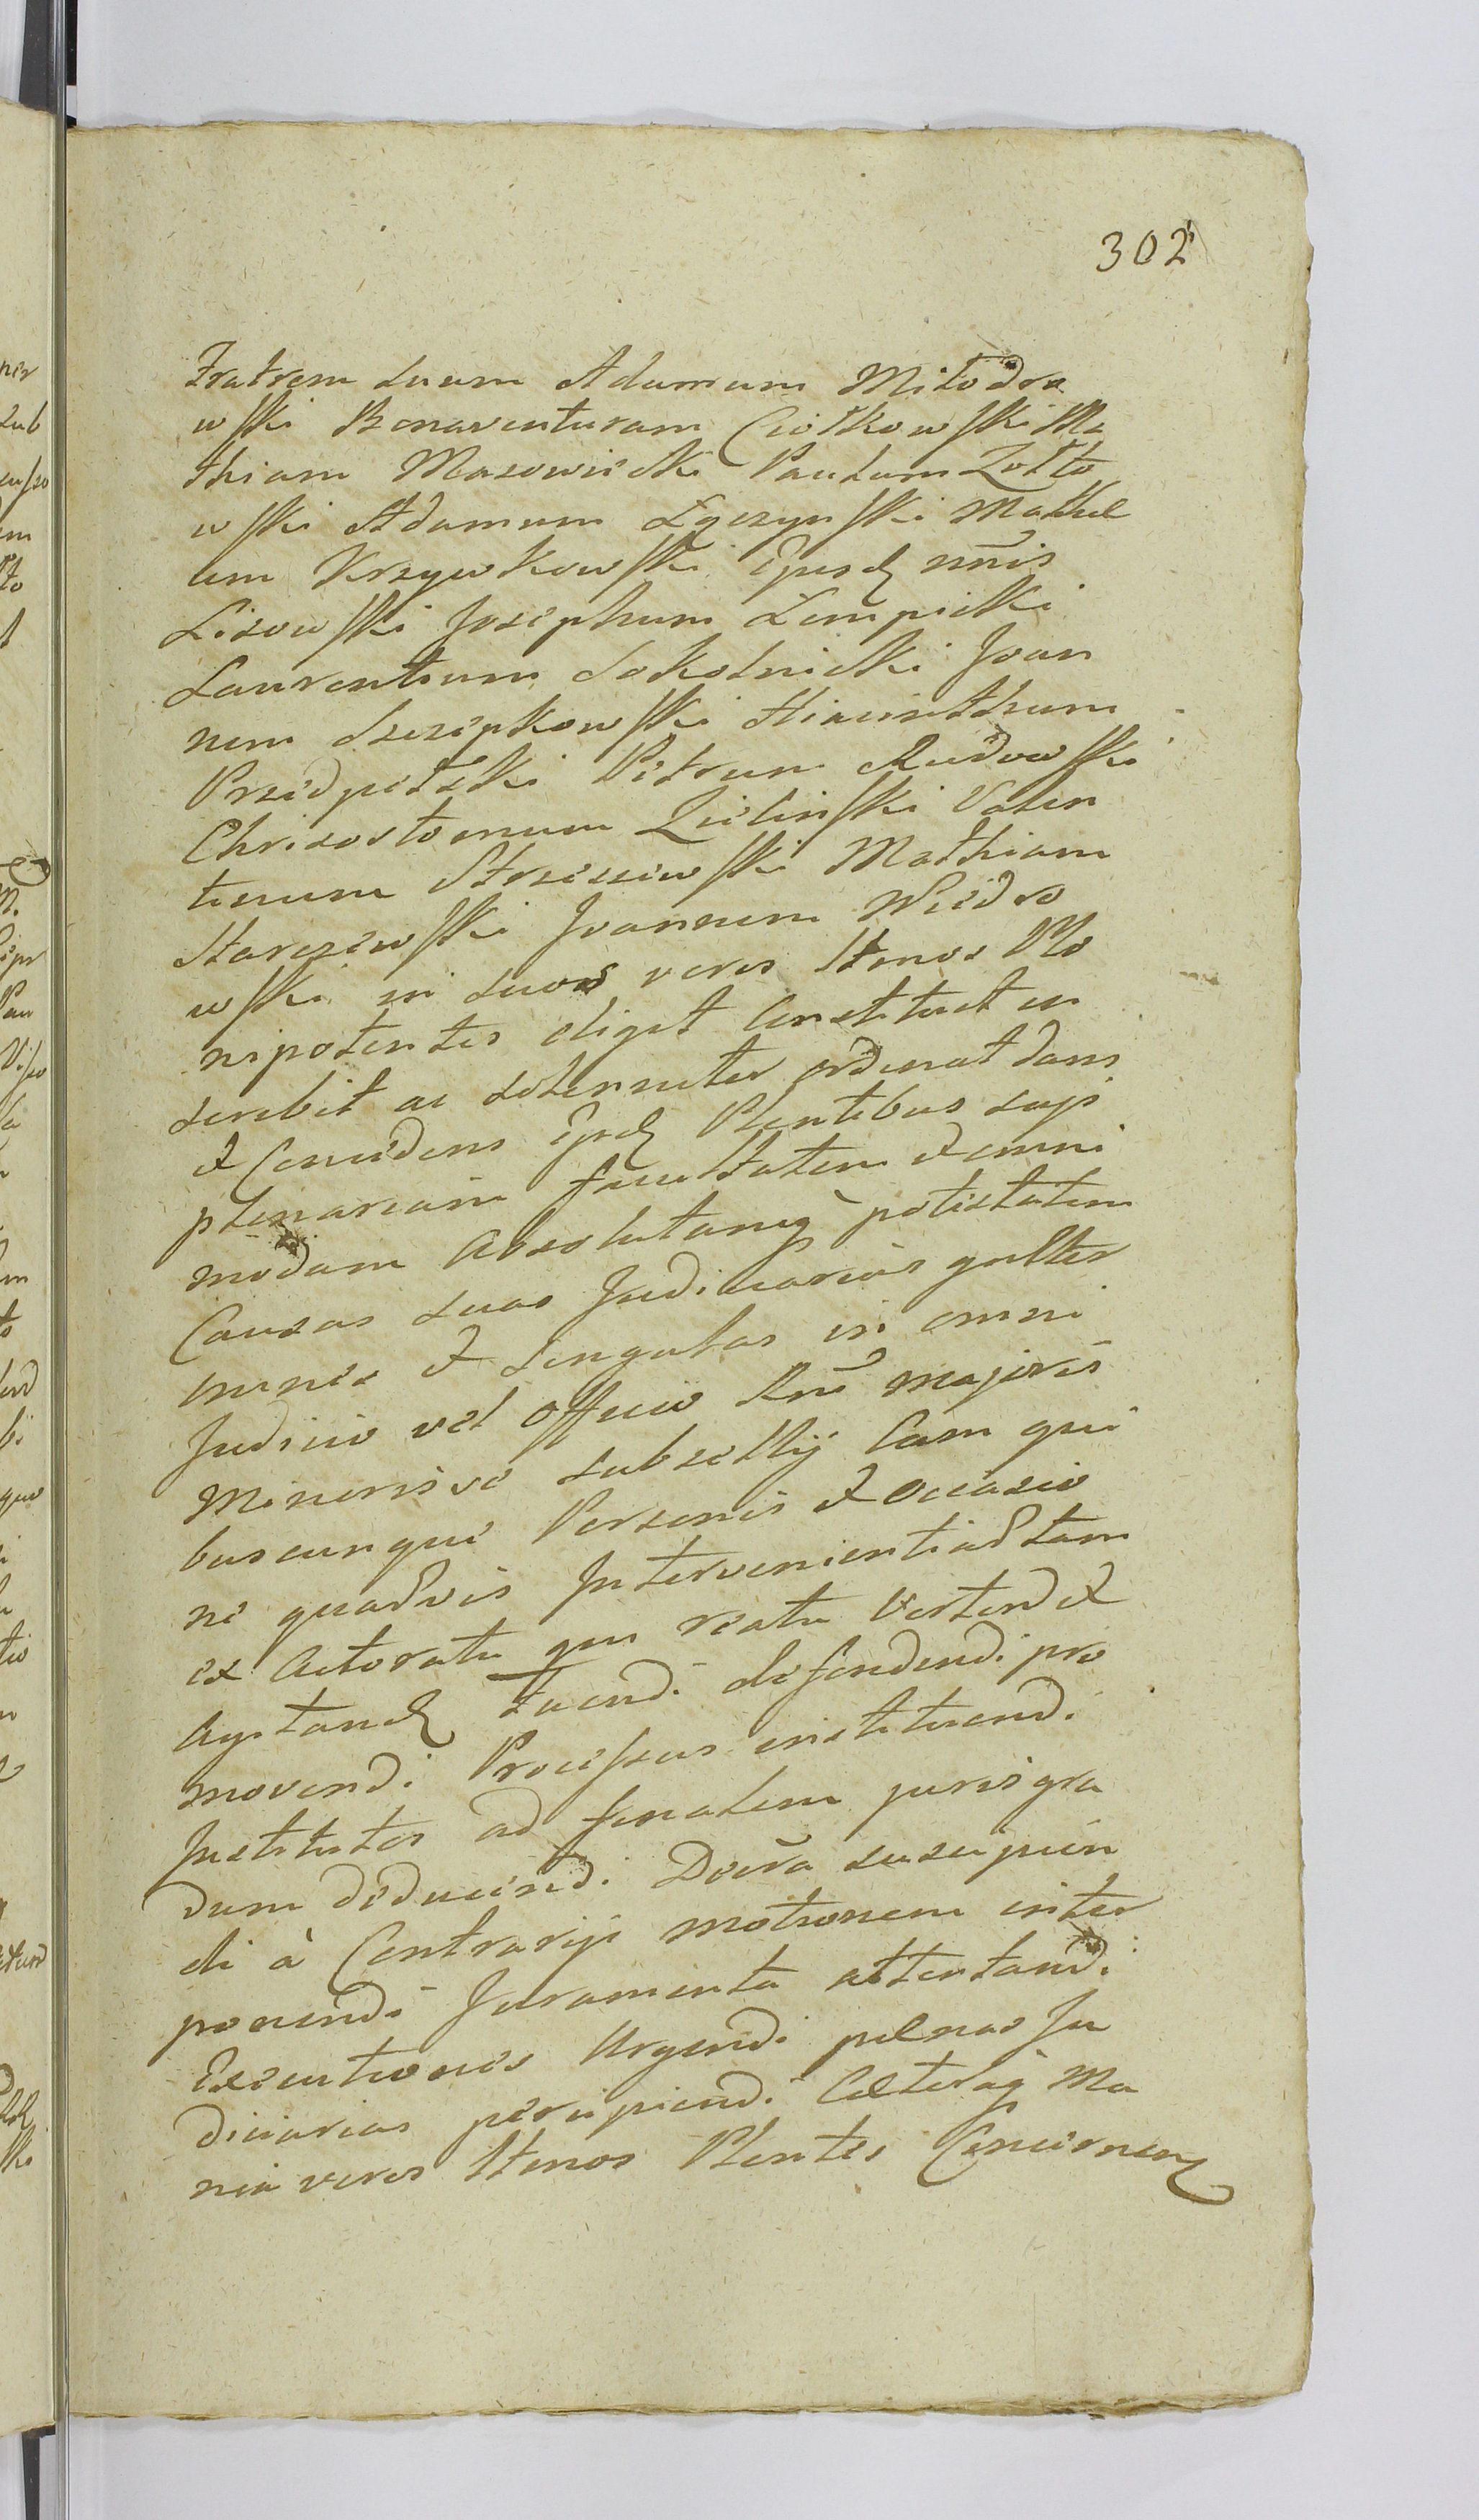 302
Fratrem suum Adamum Miłodro
wski Bonaventuram Ciołkowski Ma
thiam Mazowiecki Paulum Zołto
wski Adamum Łączynski Mathe
um Krzywkowski Ejusd nnis
Lisowski Josephum Łempicki
Laurentium Sokolnicki Joan
nem Szczepkowski Hiacinthum
Przedpełski Petrum Rudowski
Chrisostomum Zielinski Valen
tinum Strzeszewski Mathiam
Starczewski Joannem Niedro
wski in suos veros Ltmos Ple
nipotentes eligit Constituit in
scribit ac solenniter ordinat dans
et Concedens Ijsd Plentibus suis
plenariam facultatem et omni
modam Absolutamq potestatem
Causas suas Judiciarias gnlter
omnes et singulas in omni
Judicio vel officio Rni majoris
Minorisve subsellij Cum qui
buscunque Personis et occasio
ne quadvis Intervenientiad tam
ex Actoratu qm reatu Vertend et
Agitand tuendi defendendi pro
movendi Processus instituendi
Institutos ad finalem juris gra
dum deducendi Decreta suscipien
di à Contrariis motionem inter
ponendi Juramenta attentandi
Executiones Urgendi pœnas Ju
diciarias percipiendi Cæteraq Mu
nia veros Ltmos Plentes Concernen